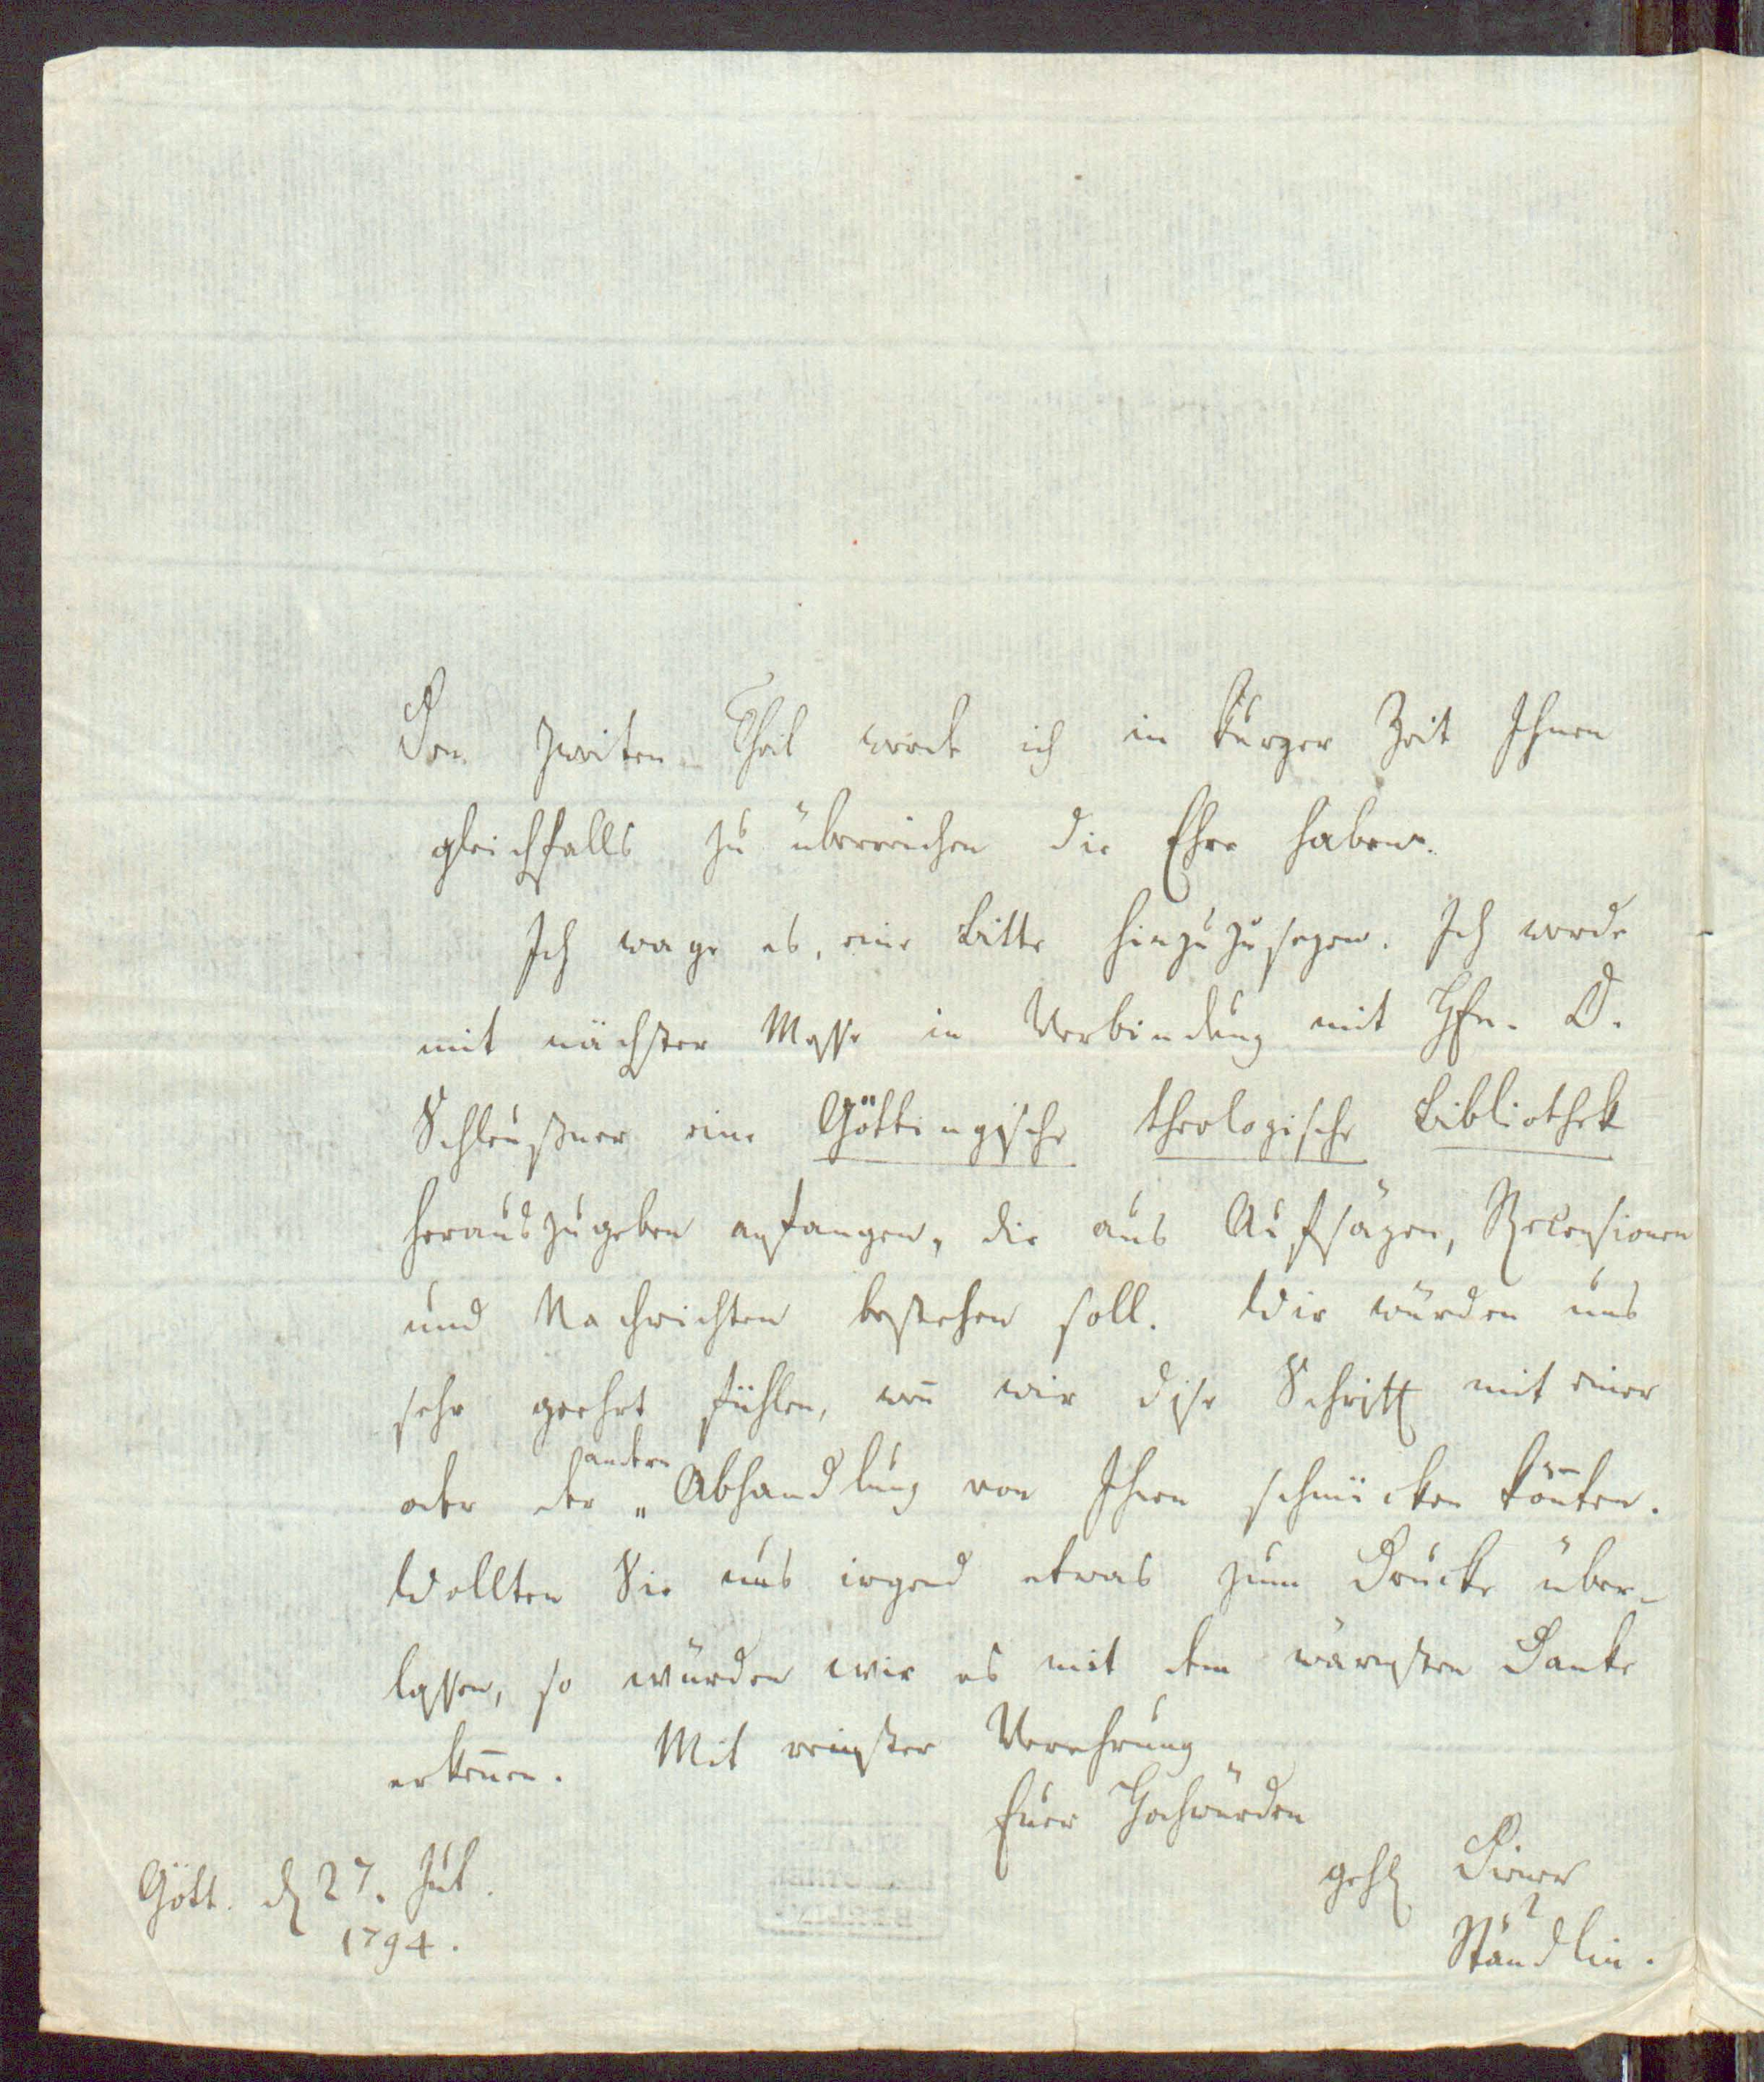 Den zweiten Theil werde ich in kurzer Zeit Ihnen
gleichfalls zu überreichen die Ehre haben.
Ich wage es, eine Bitte hinzuzusezen. Ich werde
mit nächster Messe in Verbindung mit Hℎn. D.
Schleußner eine Göttingische theologische Bibliothek
herauszugeben anfangen, die aus Aufsäzen, Recensionen
und Nachrichten bestehen soll. Wir würden uns
sehr geehrt fühlen, weñ wir dise Schrift mit einer
oder der andern Abhandlung von Ihnen schmücken kön̄ten.
Wollten Sie uns irgend etwas zum Drucke über-
lassen, so würden wir es mit dem wärmsten Danke
erkeñen. Mit reinster Verehrung
Euer Hochwürden
Gött. d 27. Jul.
1794.
gehs Diener
Stäudlin.